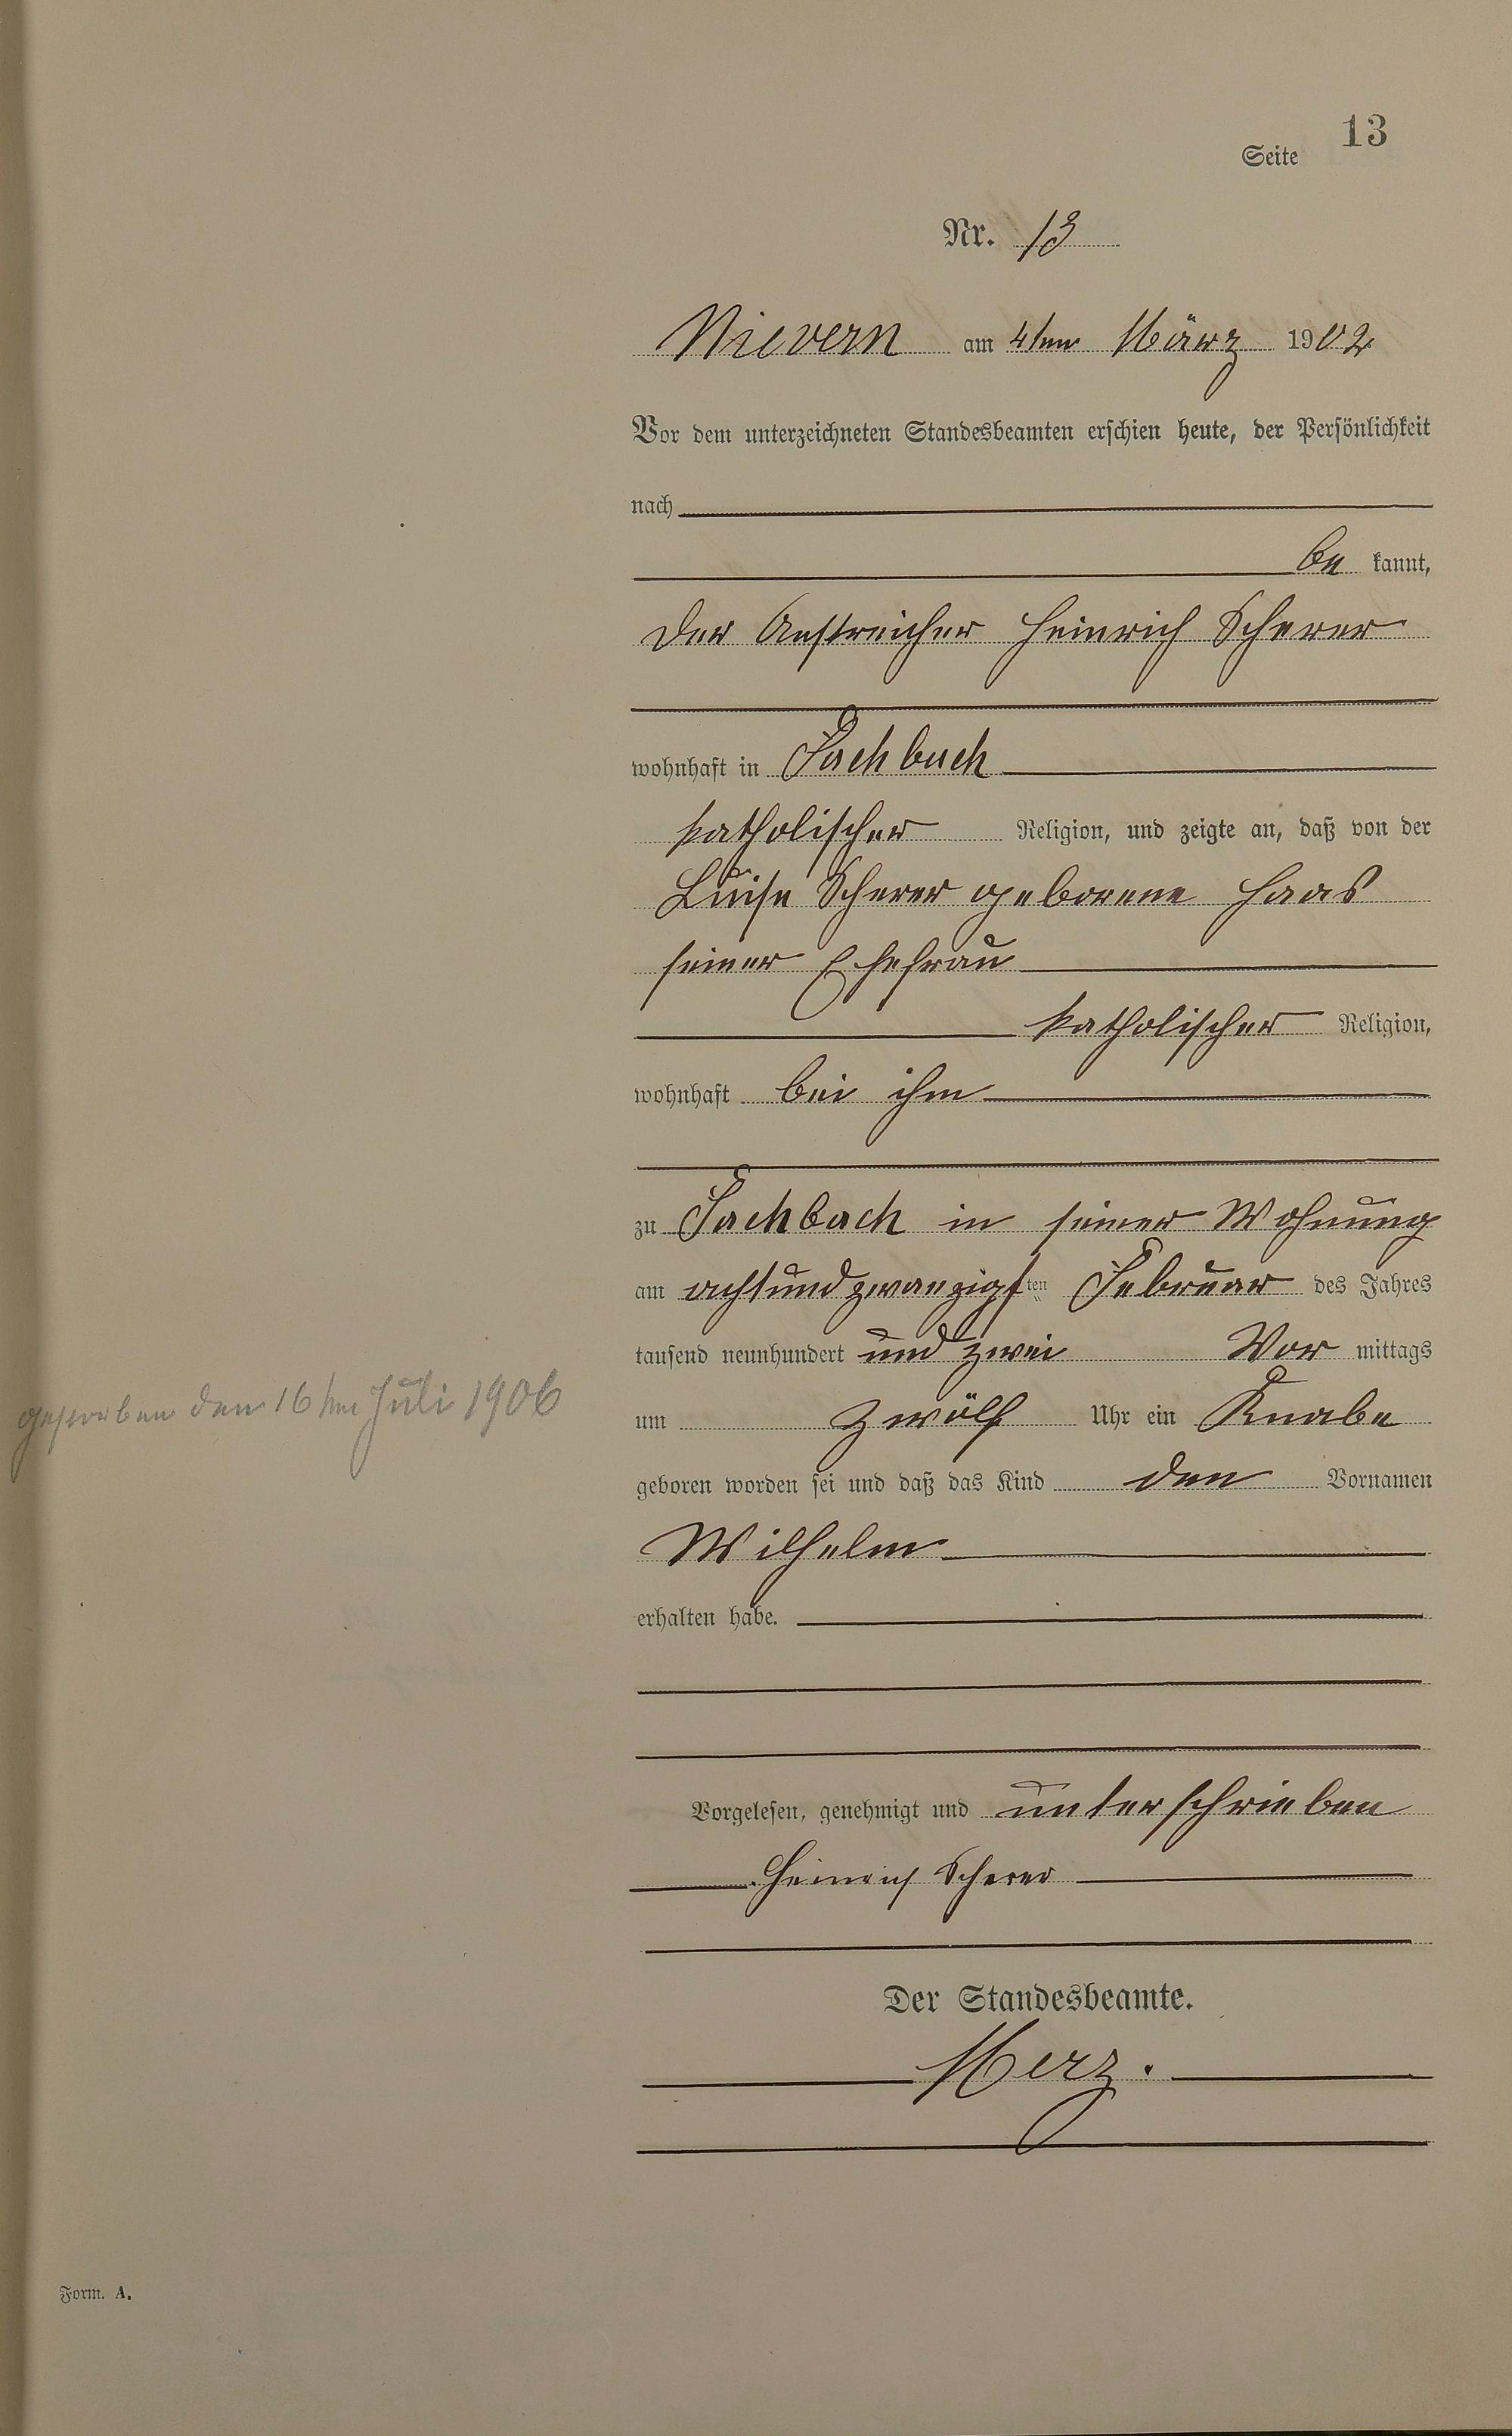 Seite 13
Nr. 13
Nievern am 4ten März 1902
Vor dem unterzeichneten Standesbeamten erschien heute, der Persönlichkeit
nach
be kannt,
der Anstreicher Heinrich Scherer
wohnhaft in Fachbach
katholischer Religion, und zeigte an, daß von der
Luise Scherer geborene Haas
seiner Ehefrau
katholischer Religion,
wohnhaft bei ihm
zu Fachbach in seiner Wohnung
am achtundzwanzigsten Februar des Jahres
tausend neunhundert und zwei Vor mittags
um zwölf Uhr ein Knabe
gestorben den 16ten Juli 1906
geboren worden sei und daß das Kind den Vornamen
Wilhelm
erhalten habe.
Vorgelesen, genehmigt und unterschrieben
Heinrich Scherer
Der Standesbeamte.
Merz.
Form. A.